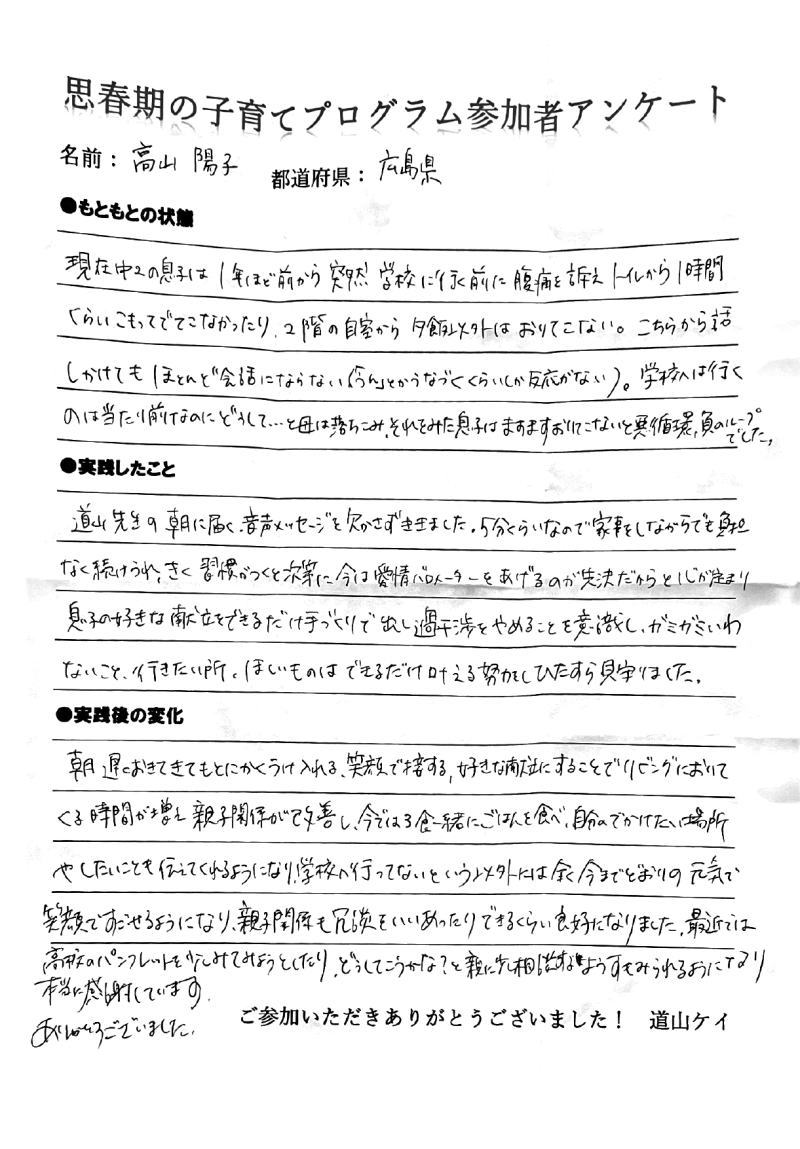 思春期の子育てプログラム参加者アンケート
名前： 高山 陽子 都道府県： 広島県
●もともとの状態
現在中2の息子は 1年ほど前から 突然 学校に行く前に 腹痛を訴え トイレから1時間
くらいこもってでてこなかったり、2階の自室から 夕飯以外は おりてこない。こちらから話
しかけても ほとんど会話にならない(「うん」とかうなづくくらいしか反応がない)。学校へは行く
のは当たり前なのにどうして…と母は落ちこみ、それをみた息子はますますおりてこないと悪循環、負のループ
でした。
●実践したこと
道山先生の 朝に届く、音声メッセージを欠かさずききました。5分くらいなので家事をしながらでも負担
なく続けられ、きく 習慣がつくと次第に 今は愛情バロメーターをあげるのが先決だからと心が定まり
息子の好きな献立をできるだけ手づくりで出し過干渉をやめることを意識し、ガミガミいわ
ないこと、行きたい所、ほしいものは できるだけ叶える努力をし ひたすら見守りました。
●実践後の変化
朝 遅くおきてきてもとにかくうけ入れる、笑顔で接する、好きな献立にすることでリビングにおりて
くる時間が増え 親子関係が改善し、今では3食一緒にごはんを食べ、自分のでかけたい場所
やしたいことも伝えてくれるようになり、学校へ行ってないという以外には余く今までどおりの 元気で
笑顔ですごせるようになり、親子関係も冗談をいいあったりできるくらい良好になりました。最近では
高校のパンフレットを少しみてみようとしたり、どうしてこうかな？と親に少し相談するようすもみられるようになり
本当に感謝しています。
ありがとうございました。
ご参加いただきありがとうございました！ 道山ケイ